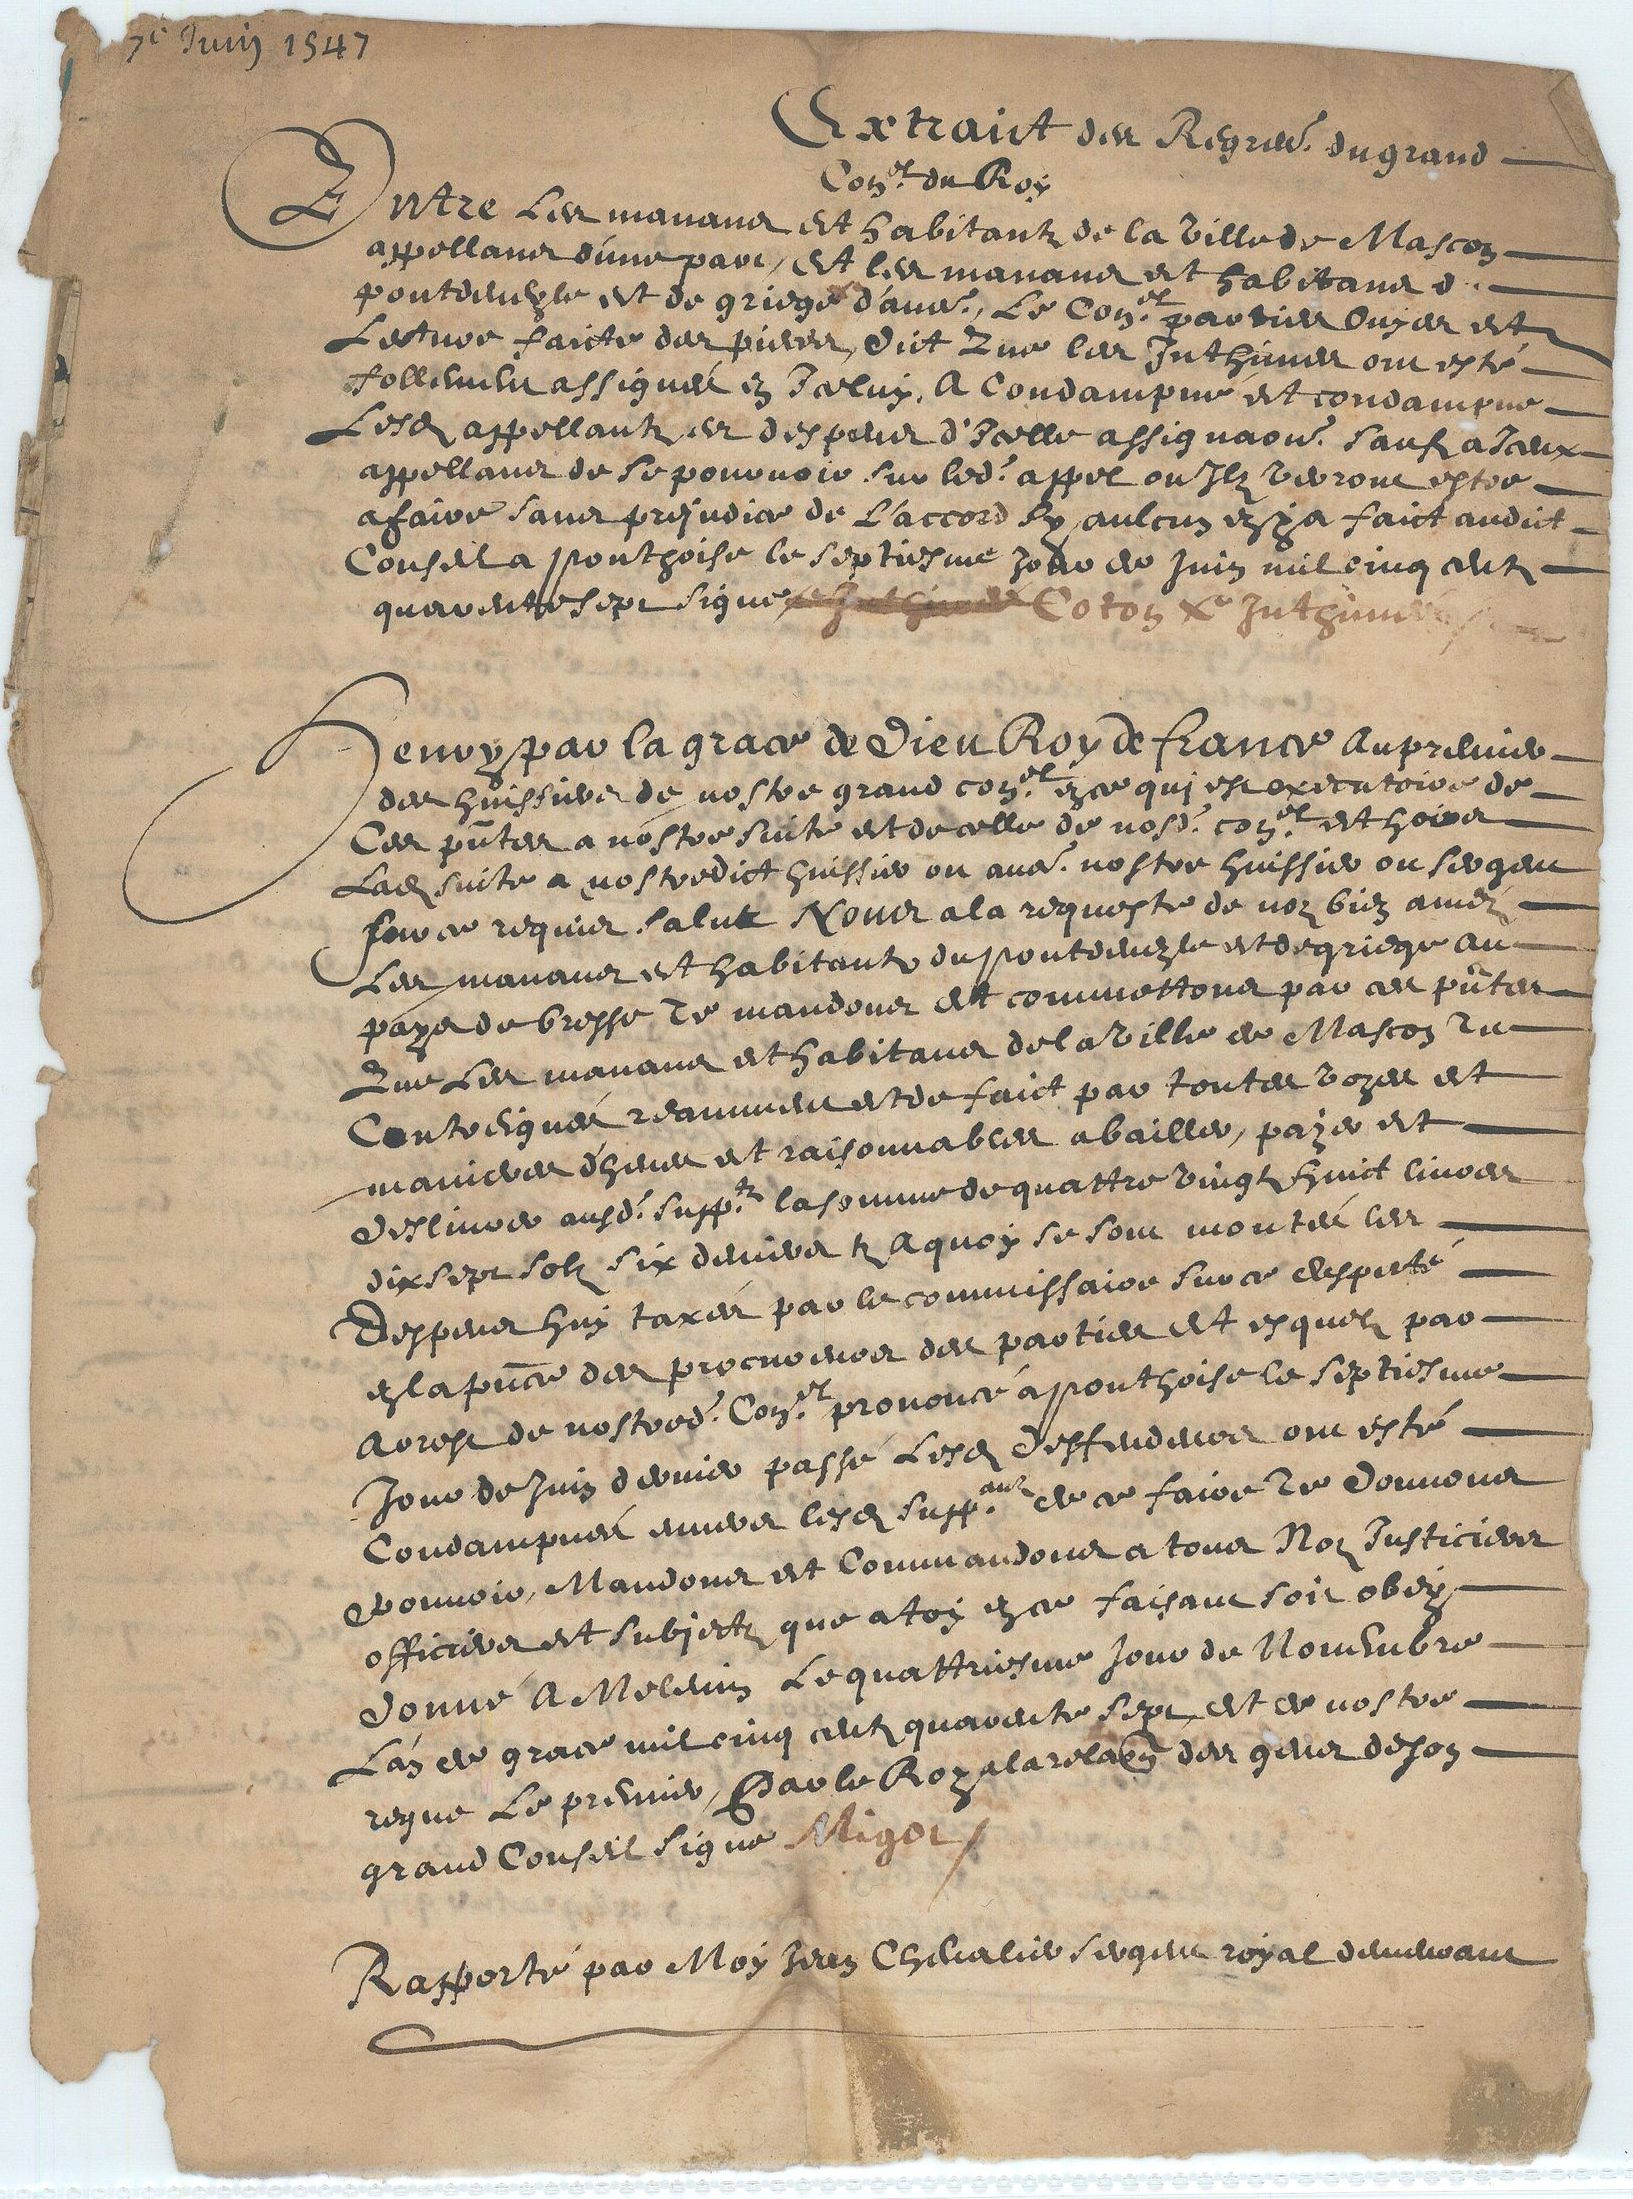 7e Juin 1547
Extraict des Regres. du grand
Conel. du Roy
Entre Les manans et habitantz de la ville de Mascon
appellans d'une part, et les manans et habitans d
pontdeveyle et de griege d'autre., Le Conel. parties Ouyes et
Lecture faicte des pieces, dict Que les Inthimes ont esté
follement assignés en Iceluy, A Condampné et condampne
Lesd appellantz es despens d'Icelle assignaon. sauf a Iceux
appellans de se pourvoir sur led. appel ou Ilz verront estre
a faire sans prejudice de L'accord sy aulcun en y a faict audict
Conseil a ponthoise le septiesme Jour de Juin mil cinq centz
quarente sept signe Coton Xe Inthimés
Henry par la grace de Dieu Roy de france Au premier
des huissiers de nostre grand conel. en ce qui est executoire de
Ces pntes a nostre suite et de celle de nosd. conel. et hors
Lad suite a nostredict huissier ou autre. nostre huissier ou sergent
sur ce requis salut Nous a la requeste de noz bien amez
Les manans et habitantz du pontdeveyle et de griege au
pays de bresse Te mandons et commettons par ces pntes
Que Les manans et habitans de la ville de Mascon Tu
Contreignes reaument et de faict par toutes voyes et
manieres d'heues et raisonnables a bailler, payer et
deslivrer ausd. supptz. la somme de quattre vingtz huict livres
dix sept solz six deniers tz A quoy se sont montés les
Despens huy taxés par le commissaire sur ce desputé
en la pnce des procureurs des parties et esquelz par
Arrest de nostred. Conel. prononcé a ponthoise le septiesme
Jour de Juin dernier passé Lesd deffendeurs ont esté
Condampnés envers lesd suppantz. de ce faire Te Donnons
pouvoir, Mandons et Commandons a tous Noz Justiciers
officiers et subjectz que a toy en ce faisant soit obey
Donné A Meleuin Le quattriesme Jour de Novembre
L'an de grace mil cinq centz quarente sept et de nostre
regne Le premier, Par le Roy a la relaon des gens de son
grand Conseil Signe Migot /
Rapporté par Moy Jean Chevalier sergent royal demeurant